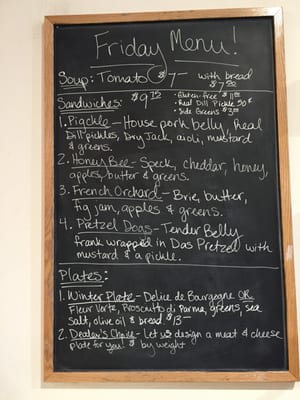 Friday Menu!
Soup: Tomato $7- with bread
$7.50
Sandwiches: $9.75
· Gluten-free $11.00
· Real Dill Pickle 50¢
· Side Greens $3.00
1. Pigckle - House pork belly, Real
Dill pickles, Dry Jack, aioli, mustard
& greens.
2. Honey Bee - Speck, cheddar, honey,
apples, butter & greens.
3. French Orchard - Brie, butter,
fig jam, apples & greens.
4. Pretzel Dogs - Tender Belly
frank wrapped in Das Pretzel with
mustard & a pickle.
Plates:
1. Winter Plate - Delice de Bourgogne OR
Fleur Verte, Prosciutto di Parma, greens, sea
salt, olive oil & bread $13-
2. Dealer's Choice - Let us design a meat & cheese
plate for you! $ by weight